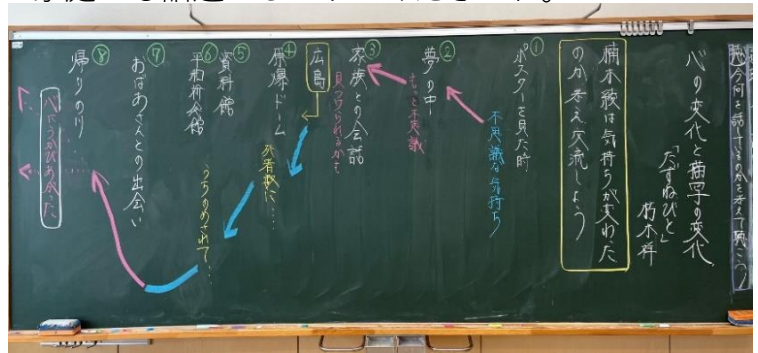 今何を話しているのかを考えて聞こう
心の変化と描写の変化
「たずねびと」
朽木祥
楠木綾は気持ちが変わった
のか考え交流しよう
①
ポスターを見た時
不思議な気持ち
②
夢の中
もっと不思議
③
家族との会話
見つけられるかも
広島
④
原爆ドーム
死者数に…
⑤
資料館
⑥
平和祈念館
うちのめされて…
⑦
おばあさんとの出会い
⑧
帰りの川
心にうかびあがった